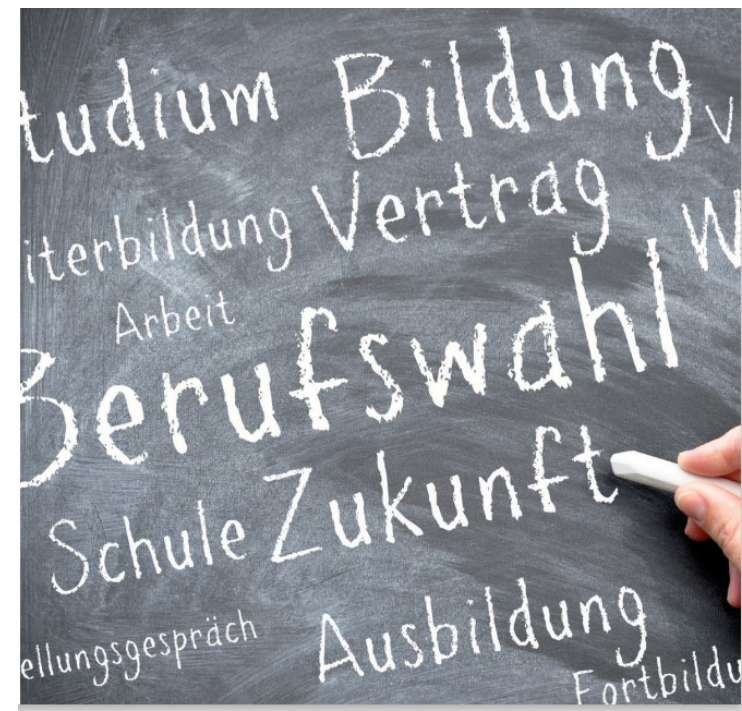 tudium Bildung v
iterbildung Vertrag W
Arbeit
Berufswahl
Schule Zukunft
ellungsgespräch Ausbildung
Fortbildu